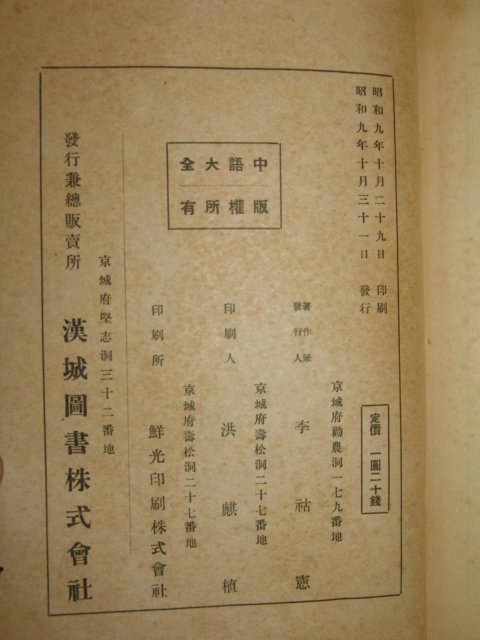 昭和九年十月二十九日 印刷
昭和九年十月三十一日 發行
定價 一圓二十錢
中語大全
版權所有
京城府勸農洞一七九番地
著作兼
發行人 李祜憲
京城府壽松洞二十七番地
印刷人 洪麒植
京城府壽松洞二十七番地
印刷所 鮮光印刷株式會社
京城府堅志洞三十二番地
發行兼總販賣所 漢城圖書株式會社